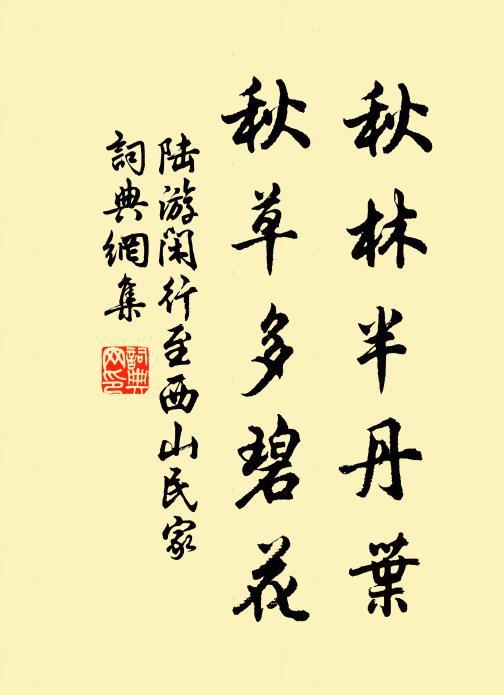 秋林半丹葉
秋草多碧花
陆游闲行至西山民家
詞典網集
詞典网印